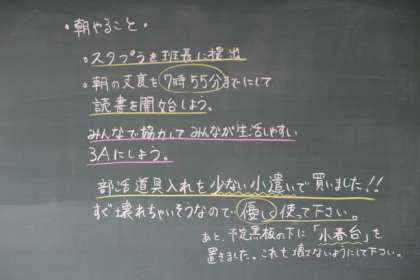 ・朝やること・
・スタプラを班長に提出
・朝の支度を7時55分までにして
読書を開始しよう。
みんなで協力してみんなが生活しやすい
3Aにしよう。
部活道具入れを少ない小遣いで買いました!!
すぐ壊れちゃいそうなので優しく使って下さい。
あと、予定黒板の下に「小春台」を
置きました。これも壊さないようにして下さい。